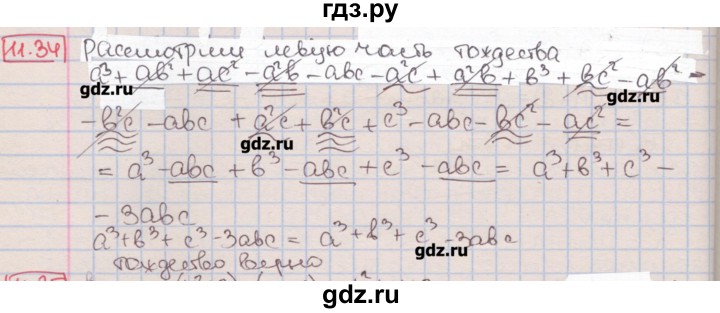 гдз.ру
11.34 Рассмотрим левую часть тождества
a³ + ab² + ac² - a²b - abc - a²c + a²b + b³ + bc² - ab² -
gdz.ru
- b²c - abc + a²c + b²c + c³ - abc - bc² - ac² =
gdz.ru
= a³ - abc + b³ - abc + c³ - abc = a³ + b³ + c³ -
- 3abc
a³ + b³ + c³ - 3abc = a³ + b³ + c³ - 3abc
gdz.ru
тождество верно
gdz.ru